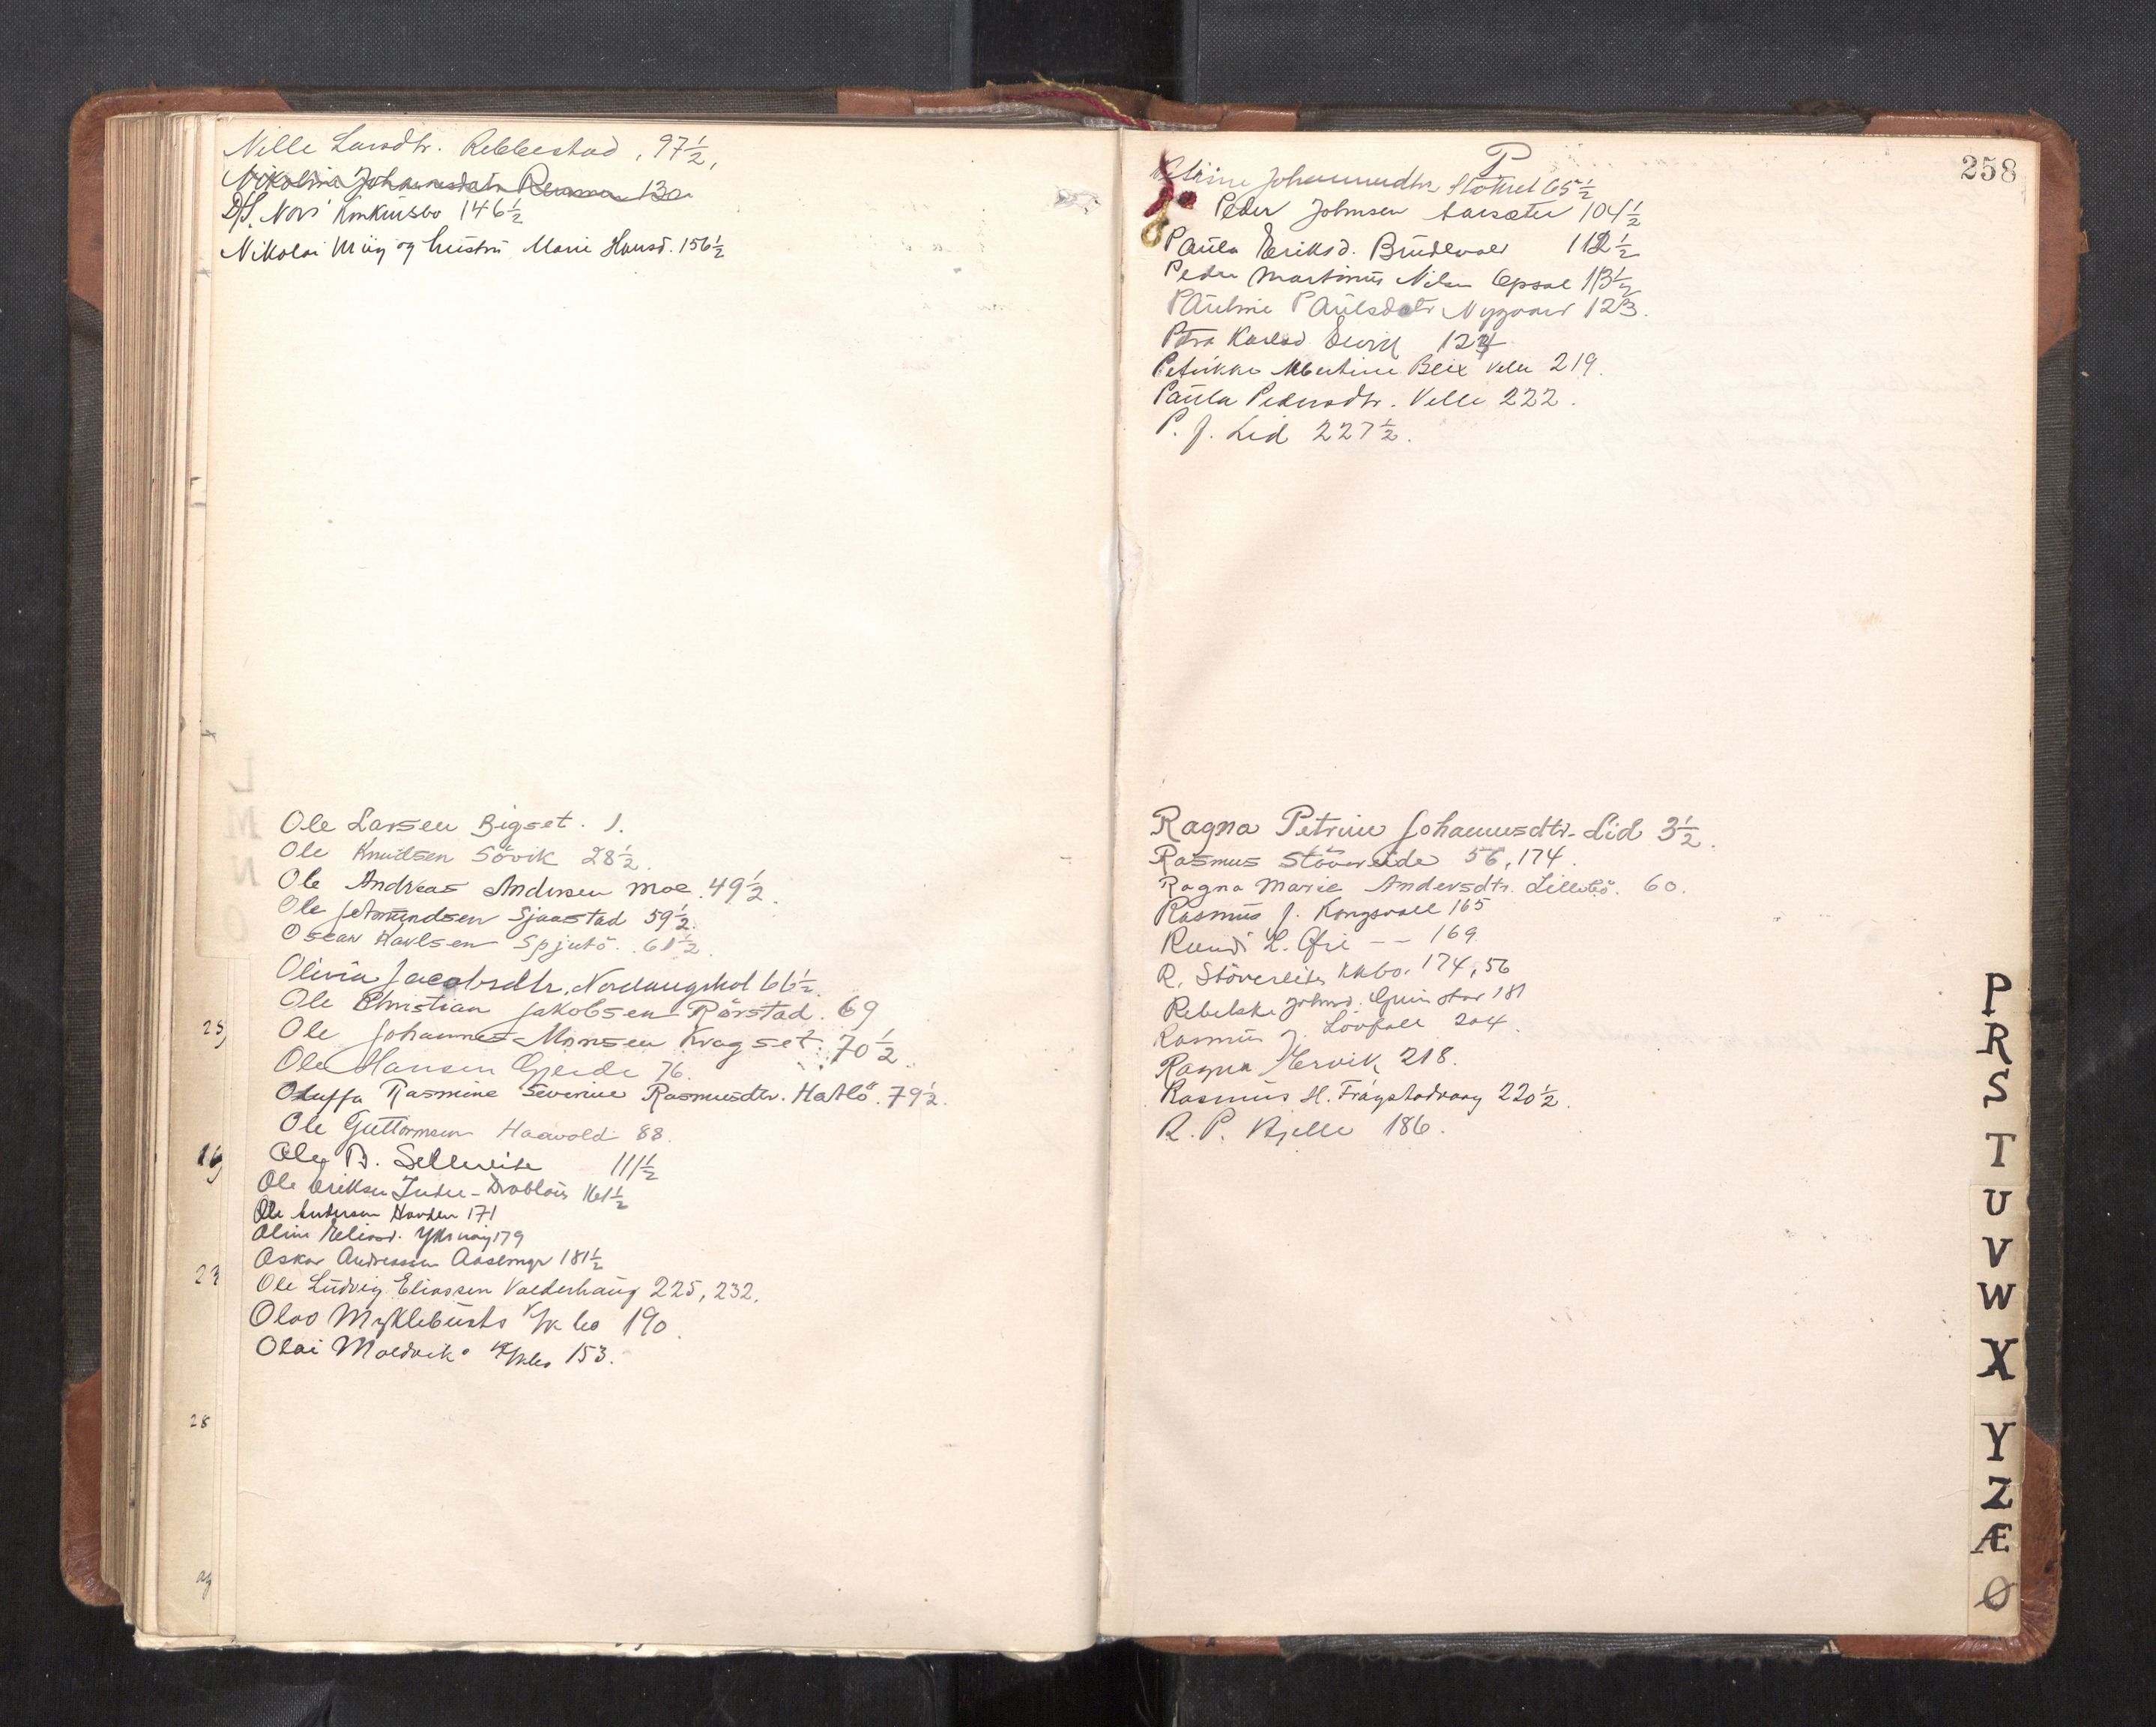 Nille Larsdtr. Rebbestad, 97½,
Nikoline Johannesdatr 130
D/S. Nor's Konkursbo 146½
Nikolai Myg og hustru Marie Hansd. 156½
L
M
N
O
Ole Larsen Bigset. 1.
Ole Knudsen Sövik 28½.
Ole Andreas Andersen Moe. 49½.
Ole Jetmundsen Sjaastad 59½.
Oscar Karlsen Spjutö. 61½.
Olivia Jacobsdtr. Nordangshol 66½.
Ole Christian Jakobsen Rörstad. 69
Ole Johannes Monsen Kragset. 70½.
Ole Hansen Gjerde 76.
Oluffa Rasmine Severine Rasmusdtr. Hatlö. 79½.
Ole Guttormsen Haavold 88.
Ole D. Selleseth 111½
Ole Eriksen Indre-Drabløs 161½
Ole Andersen Hovden 171
Oline Eliasd. 179
Oskar Andreassen 181½
Ole Ludvig Eliassen Valderhaug 225, 232.
Olav Myklebusts k/k bo 190.
Olai Moldvik k/kbo 153.
25
16
23
28
P
258
Petrine Johannesdtr. 65½
Peder Johnsen Aarsæter 104½
Paula Eriksd. Brudevold 112½
Peder Martinus Nilsen Opsal 113½
Pauline Paulsdatr Nygaard 123.
Petra Karlsd. 124
Petrikke Albertine Beix Velle 219.
Paula Pedersdtr. Velle 222.
P. J. Lid 227½.
Ragna Petrine Johannesdtr. Lid 3½.
Rasmus Stövereide 56, 174.
Ragna Marie Andersdtr. Lillebö. 60.
Rasmus J. Kongsvoll 165
L. -- 169.
R. Støvereides kkbo. 174, 56
Rebekka Johnsd. Grimstad 181
Rasmus J. Løvfall 204.
Ragna Hervik 218.
Rasmus H. 220½.
R. P. Kjelle 186.
P
R
S
T
U
V
W
X
Y
Z
Æ
Ø